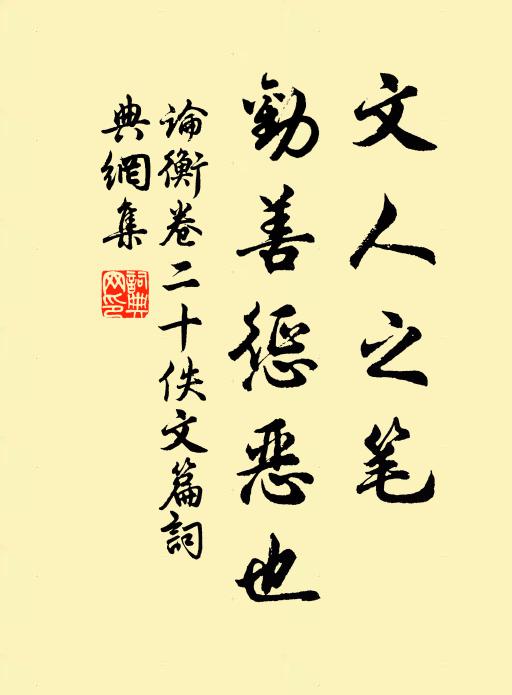 文人之笔
勸善惩恶也
論衡卷二十佚文篇詞
典網集
詞典網印